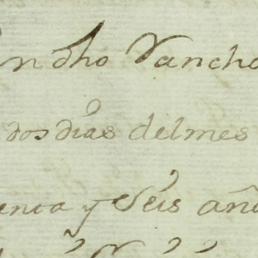 n dho Rancho
dos dias del mes
enta y Seis añ